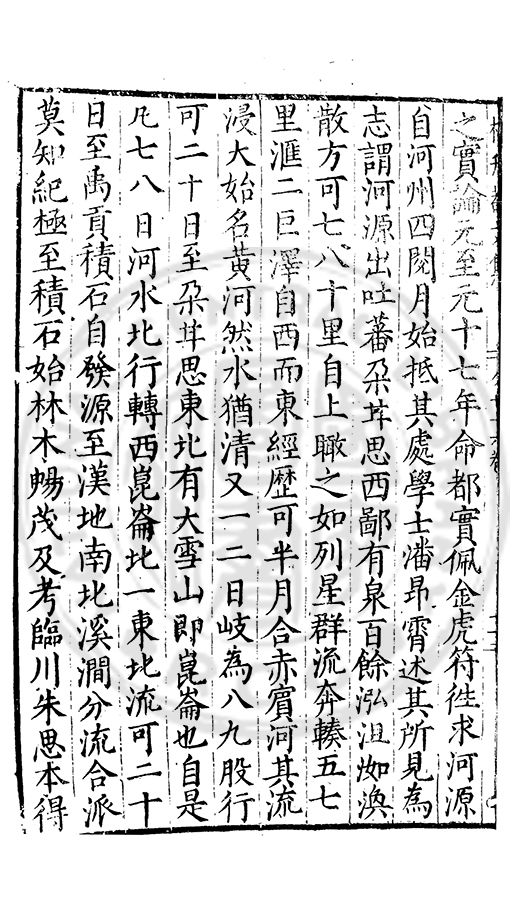 之實論元至元十七年命都實佩金虎符徃求河源
自河州四閱月始抵其處學士潘昂霄述其所見為
志謂河源出吐蕃朶甘思西鄙有泉百餘泓沮洳渙
散方可七八十里自上瞰之如列星群流奔輳五七
里滙二巨澤自西而東經歷可半月合赤賓河其流
浸大始名黄河然水猶清又一二日岐為八九股行
可二十日至朶甘思東北有大雪山即崑崙也自是
凡七八日河水北行轉西崑崙北一東北流可二十
日至禹貢積石自發源至漢地南北溪澗分流合派
莫知紀極至積石始林木暢茂及考臨川朱思本得